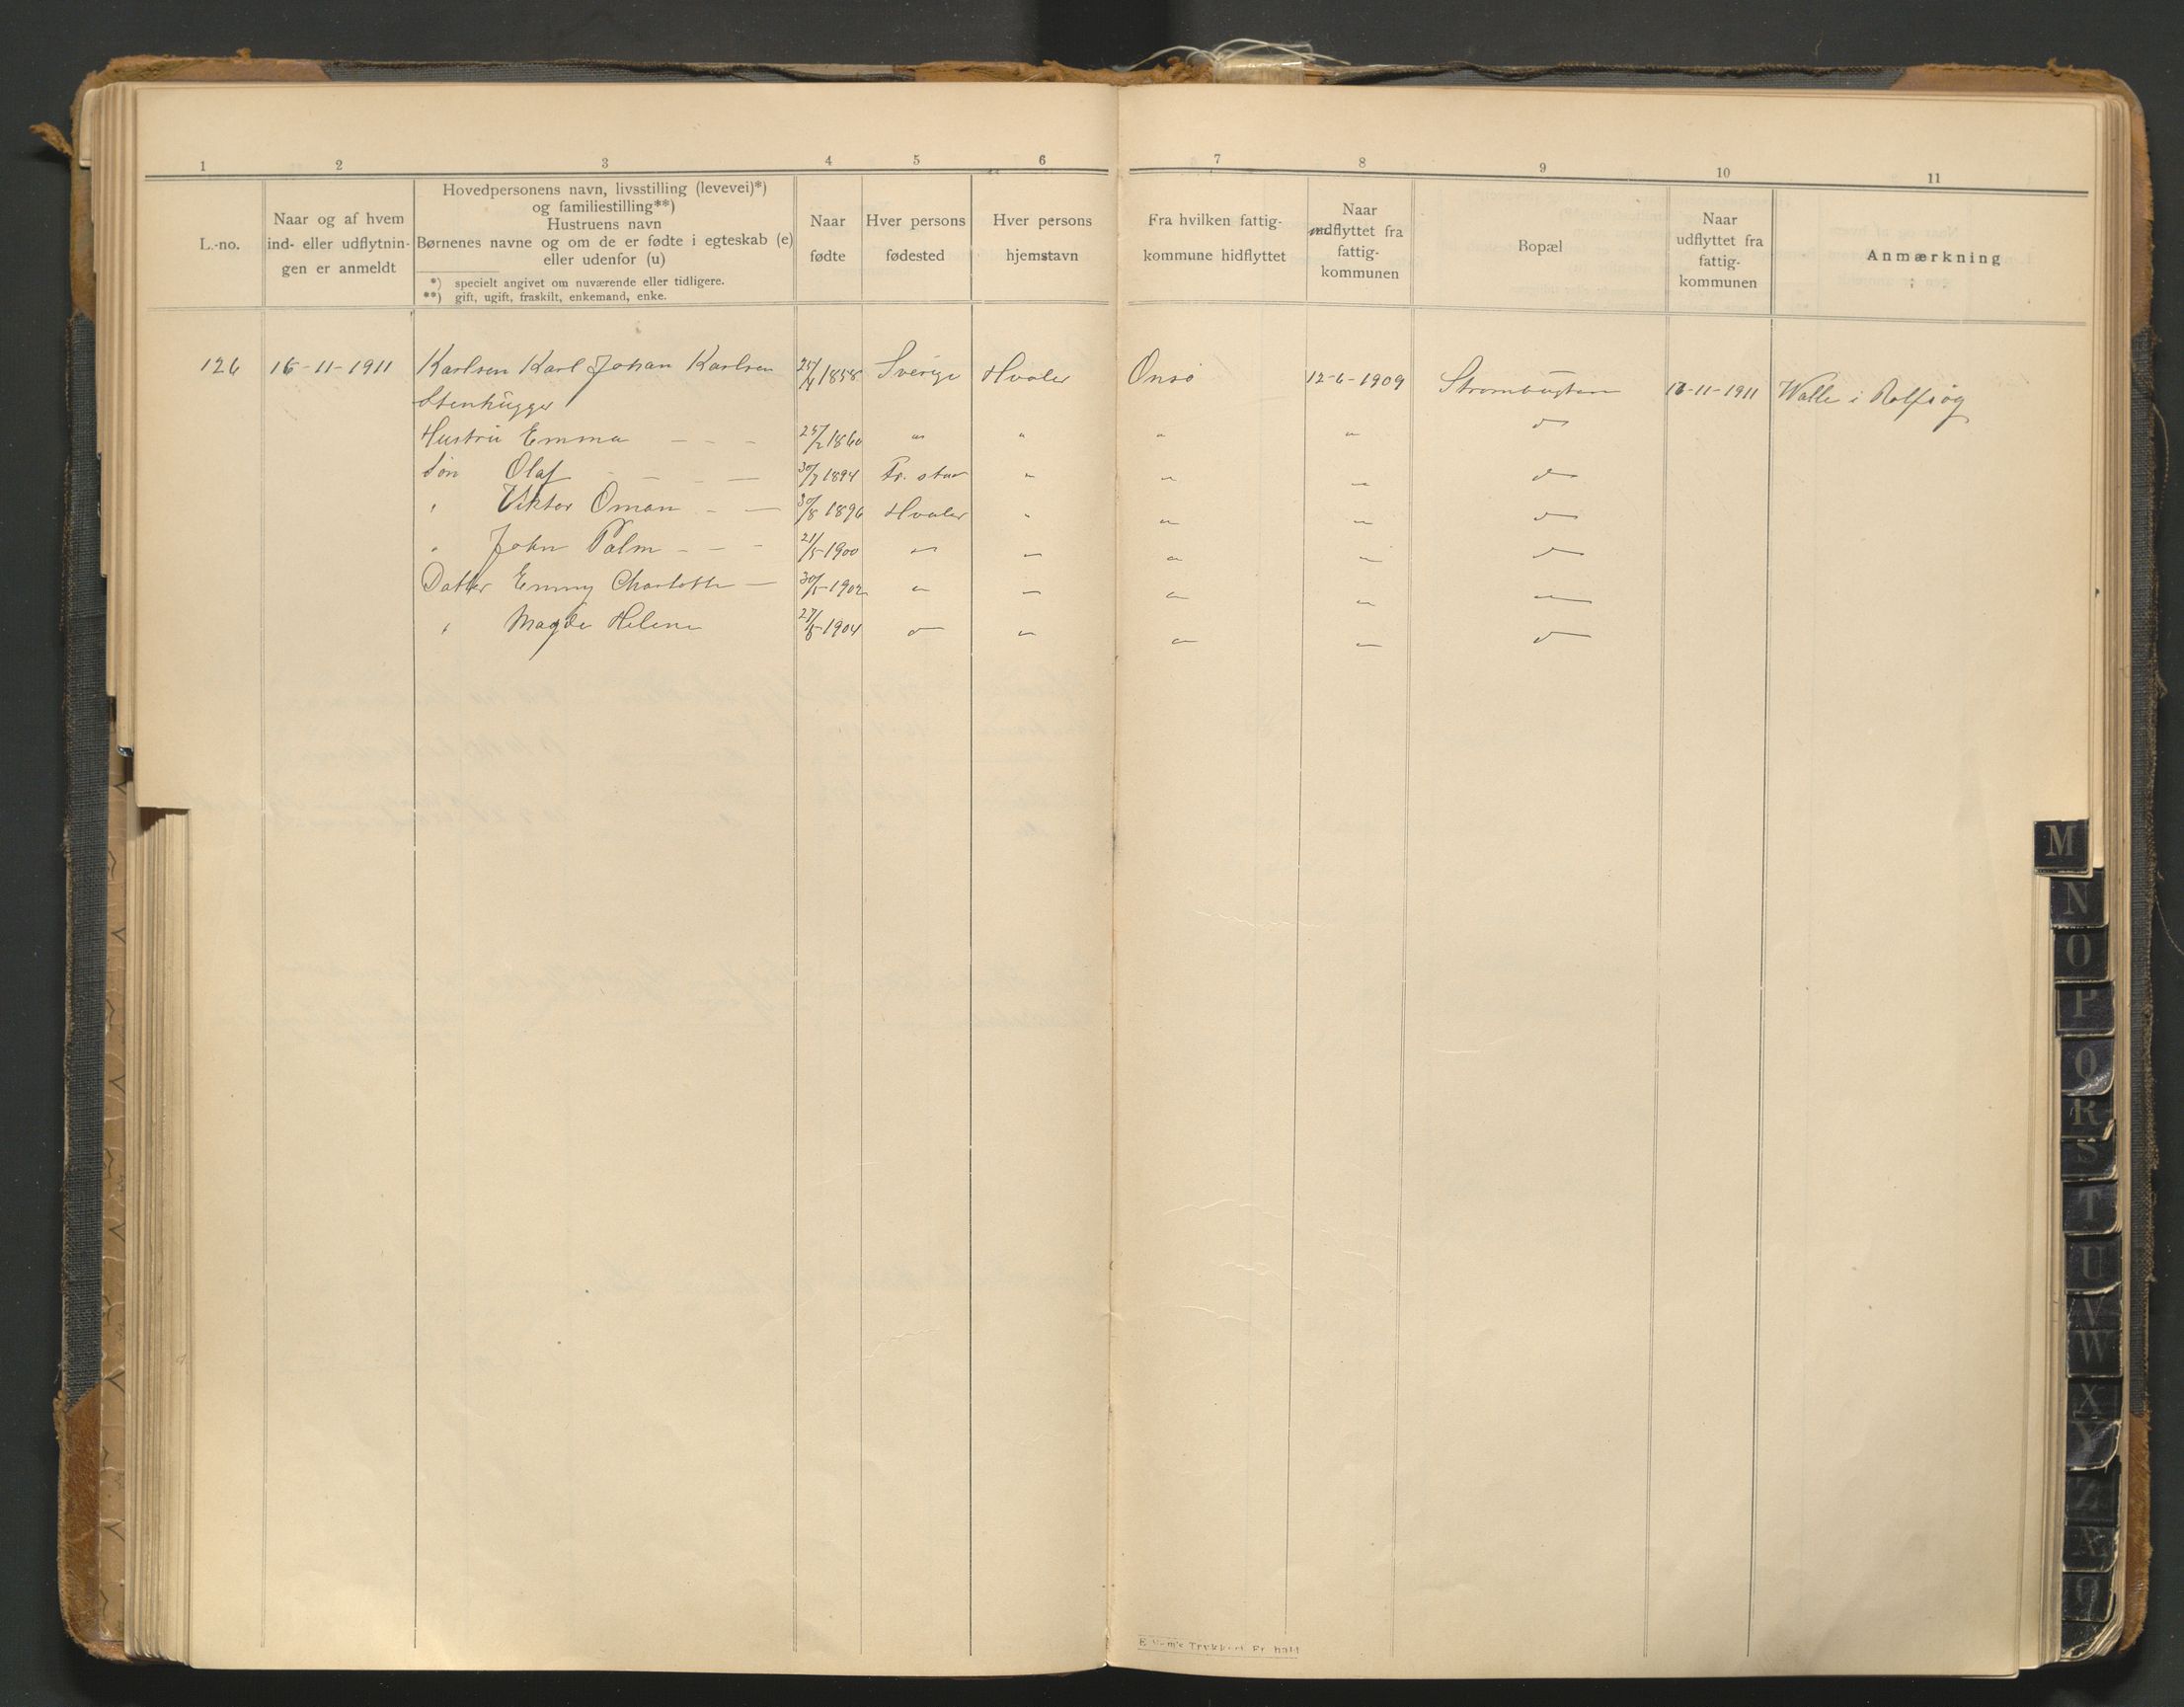 1 2 3 4 5 6 7 8 9 10 11
L.-no.
Naar og af hvem
ind- eller udflytnin-
gen er anmeldt
Hovedpersonens navn, livsstilling (levevei)*)
og familiestilling**)
Hustruens navn
Børnenes navne og om de er fødte i egteskab (e)
eller udenfor (u)
*) specielt angivet om nuværende eller tidligere.
**) gift, ugift, fraskilt, enkemand, enke.
Naar
fødte
Hver persons
fødested
Hver persons
hjemstavn
Fra hvilken fattig-
kommune hidflyttet
Naar
indflyttet fra
fattig-
kommunen
Bopæl
Naar
udflyttet fra
fattig-
kommunen
Anmærkning
126 16-11-1911 Karlsen Karl Johan Karlsen 25/4 1858 Sverige Hvaler Onsø 12-6-1909 Strømbugten 16-11-1911 Walle i Rolfsøy
Stenhugger
Hustru Emma — — — 25/2 1860 " " " " d—
Søn Olaf — — — 30/7 1894 Fr. stad " " " d—
" Viktor Oman — — 30/8 1896 Hvaler " " " d—
" John Palm — — — 21/5-1900 " " " " d—
Datter Emmy Charlotte — 30/5-1902 " " " " "
" Magda Helene 27/8-1904 " " " " d—
M
N
O
P
Q
R
S
T
U
V
W
X
Y
Z
Æ
Ø